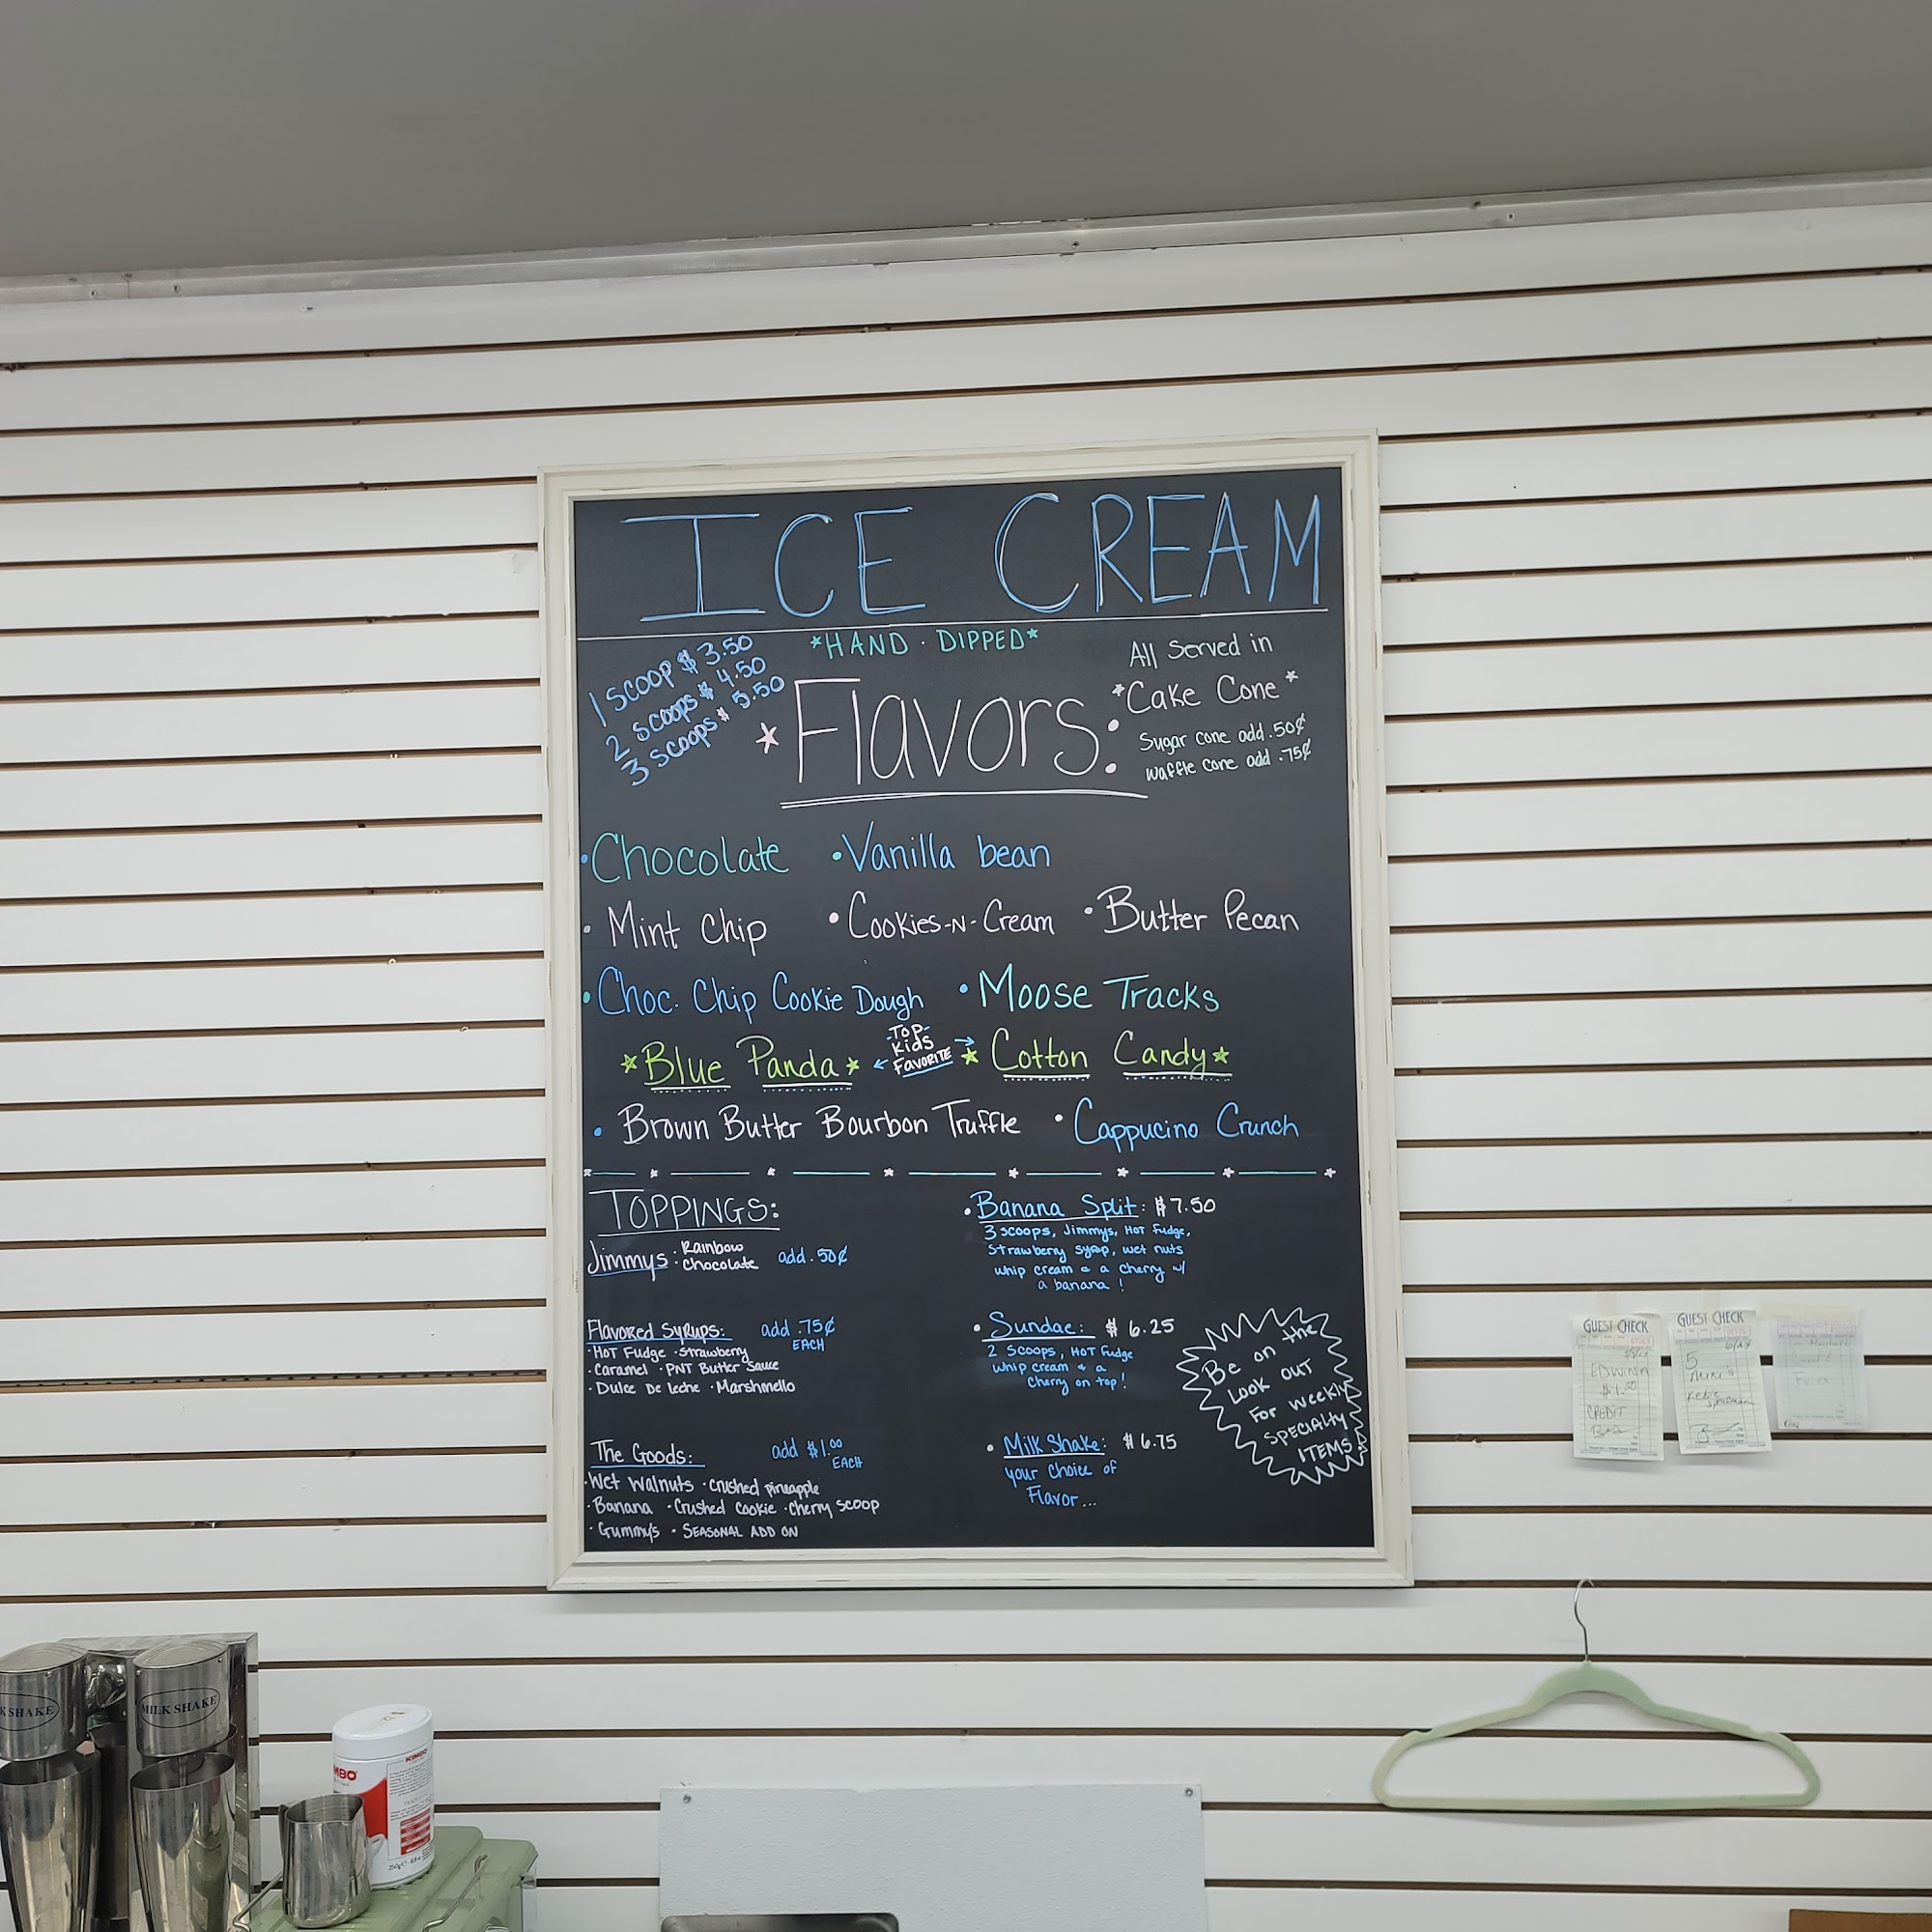 ICE CREAM
*HAND · DIPPED*
1 SCOOP $ 3.50
2 SCOOPS $ 4.50
3 SCOOPS $ 5.50
*Flavors:
All Served in
*Cake Cone*
Sugar cone add .50¢
waffle cone add .75¢
·Chocolate ·Vanilla bean
·Mint Chip ·Cookies-N-Cream ·Butter Pecan
·Choc. Chip Cookie Dough ·Moose Tracks
*Blue Panda* ← -TOP- Kids FAVORITE → *Cotton Candy*
·Brown Butter Bourbon Truffle ·Cappucino Crunch
TOPPINGS:
Jimmys: ·Rainbow ·Chocolate add .50¢
Flavored Syrups: add .75¢ EACH
·HOT Fudge ·Strawberry
·Caramel ·PNT Butter Sauce
·Dulce De leche ·Marshmello
The Goods: add $1.00 EACH
·Wet Walnuts ·crushed pineapple
·Banana ·Crushed Cookie ·Cherry scoop
·Gummys ·SEASONAL ADD ON
·Banana Split: $7.50
3 scoops, Jimmys, HOT Fudge,
Strawberry syrop, wet nuts
whip cream & a cherry w/
a banana !
·Sundae: $ 6.25
2 Scoops, HOT Fudge
whip cream & a
Cherry on top!
·Milk Shake: $ 6.75
your Choice of
Flavor...
Be on the
LOOK OUT
For weekly
SPECIALTY
ITEMS
GUEST CHECK
EDWIN
$1.50
CREDIT
GUEST CHECK
5
MINI'S
KSHAKE
MILK SHAKE
KIMBO
MBO